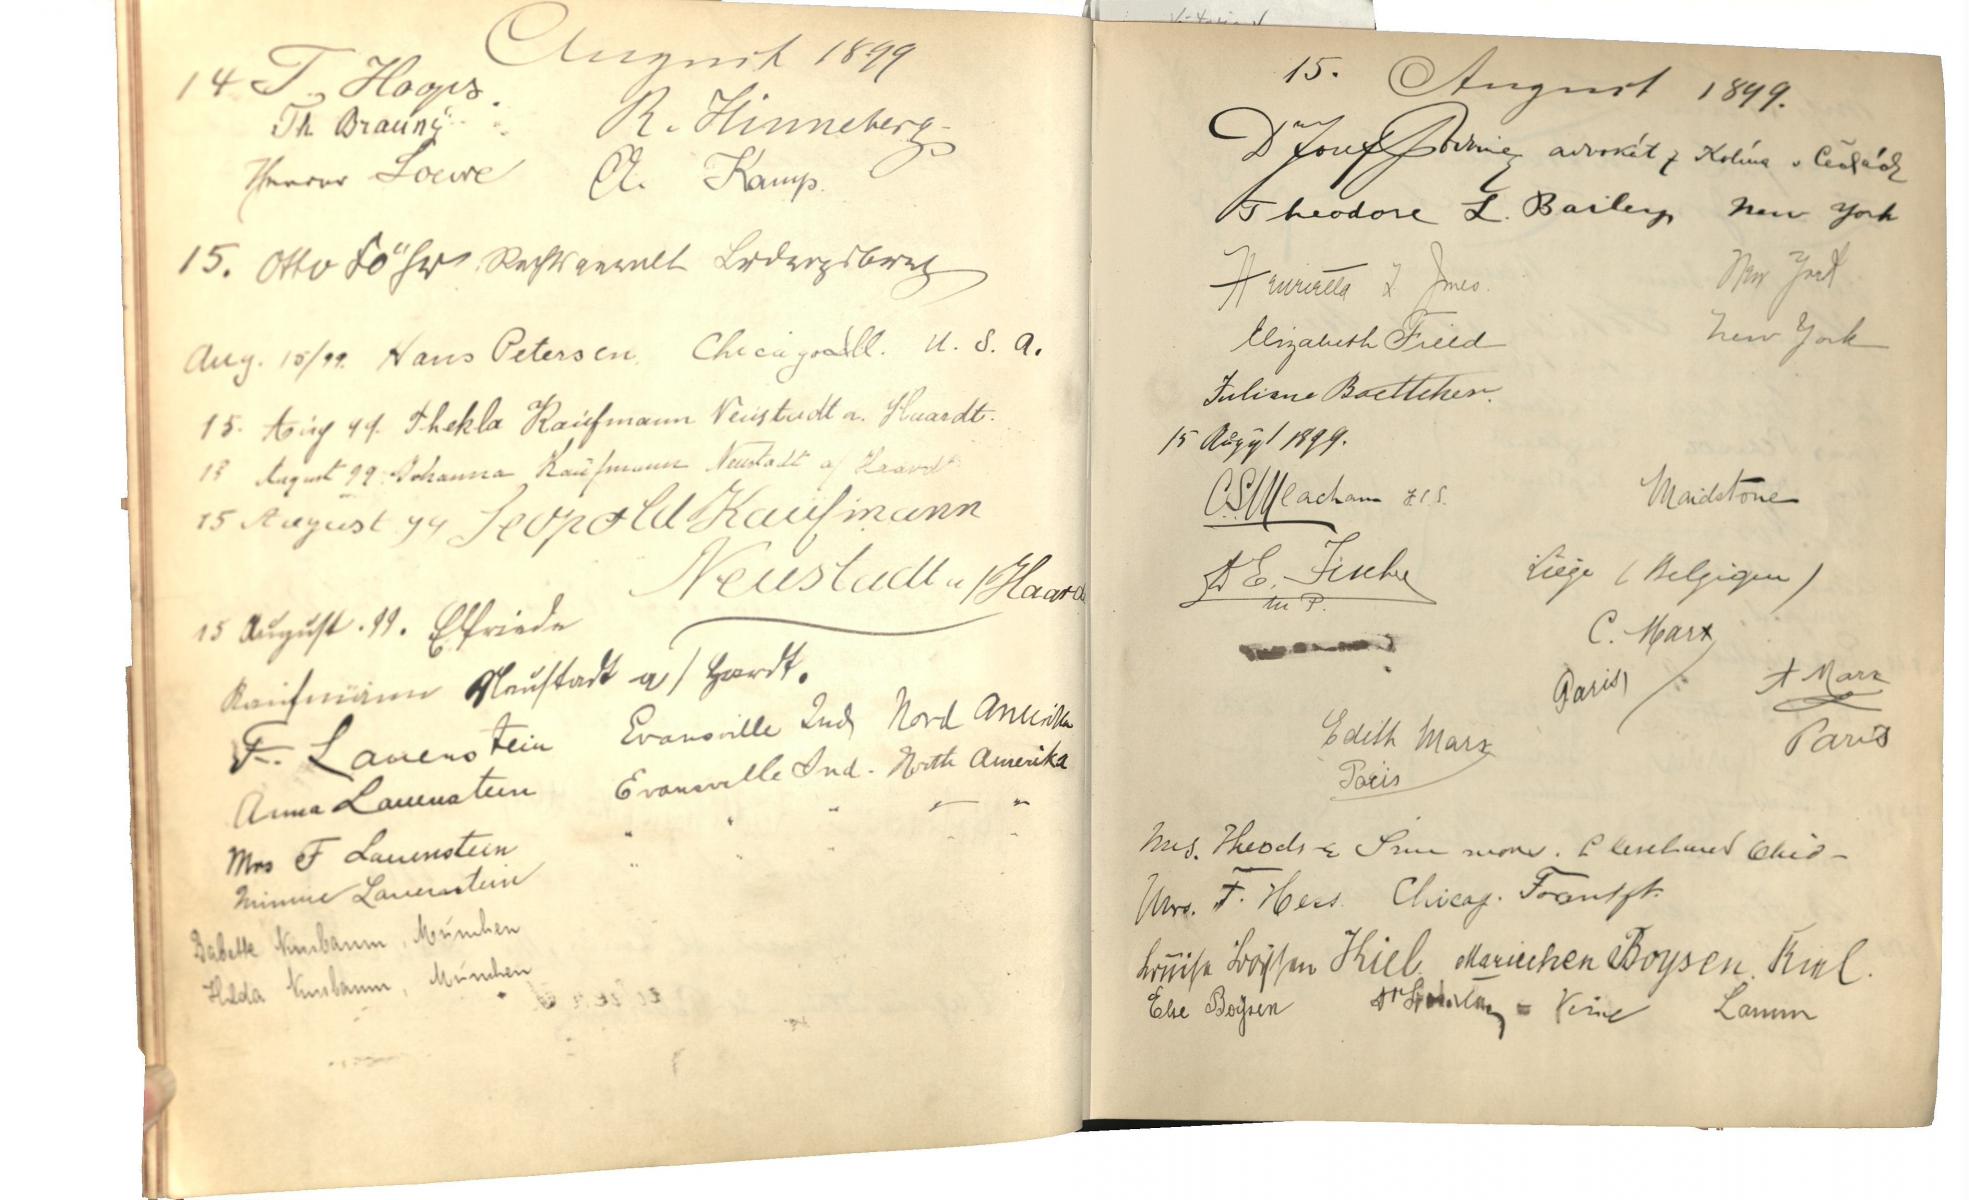 August 1899
14 T. Hoops
Th Brauny R. Hinneberg
Loewe A. Kamp.
15. Otto Föhr Rechtsanwalt
Aug. 15/99. Hans Petersen. Chicago Ill. U. S. A.
15. Aug 99. Thekla Kaufmann Neustadt a. Haardt.
15 August 99. Johanna Kaufmann Neustadt a/ Haardt
15 August 99 Leopold Kaufmann
Neustadt a/Haardt
15 August. 99. Elfriede
Kaufmann Neustadt a/ Haardt.
F. Lauenstein Evansville Ind Nord Amerika
Anna Lauenstein Evansville Ind. North Amerika
Mrs F Lauenstein " " " " "
Minnie Lauenstein " " " "
Babette Nussbaum, München
Hilda Nussbaum, München
15. August 1899.
Dr Josef advokát z Kolína v Čechách
Theodore L. Bailey, New York
Henrietta L Jones. New York
Elizabeth Freed New York
Juliane Boettcher.
15 August 1899.
C.S. Meacham F.C.S. Maidstone
Dr E. Fischer Liège (Belgique)
C. Marx
Paris, A Marx
Edith Marx Paris
Paris
Mrs. Cleveland Ohio -
Mrs. F. Hess. Chicag. Frankft.
Louise Boysen Kiel. Mariechen Boysen. Kiel.
Else Boysen Lamm